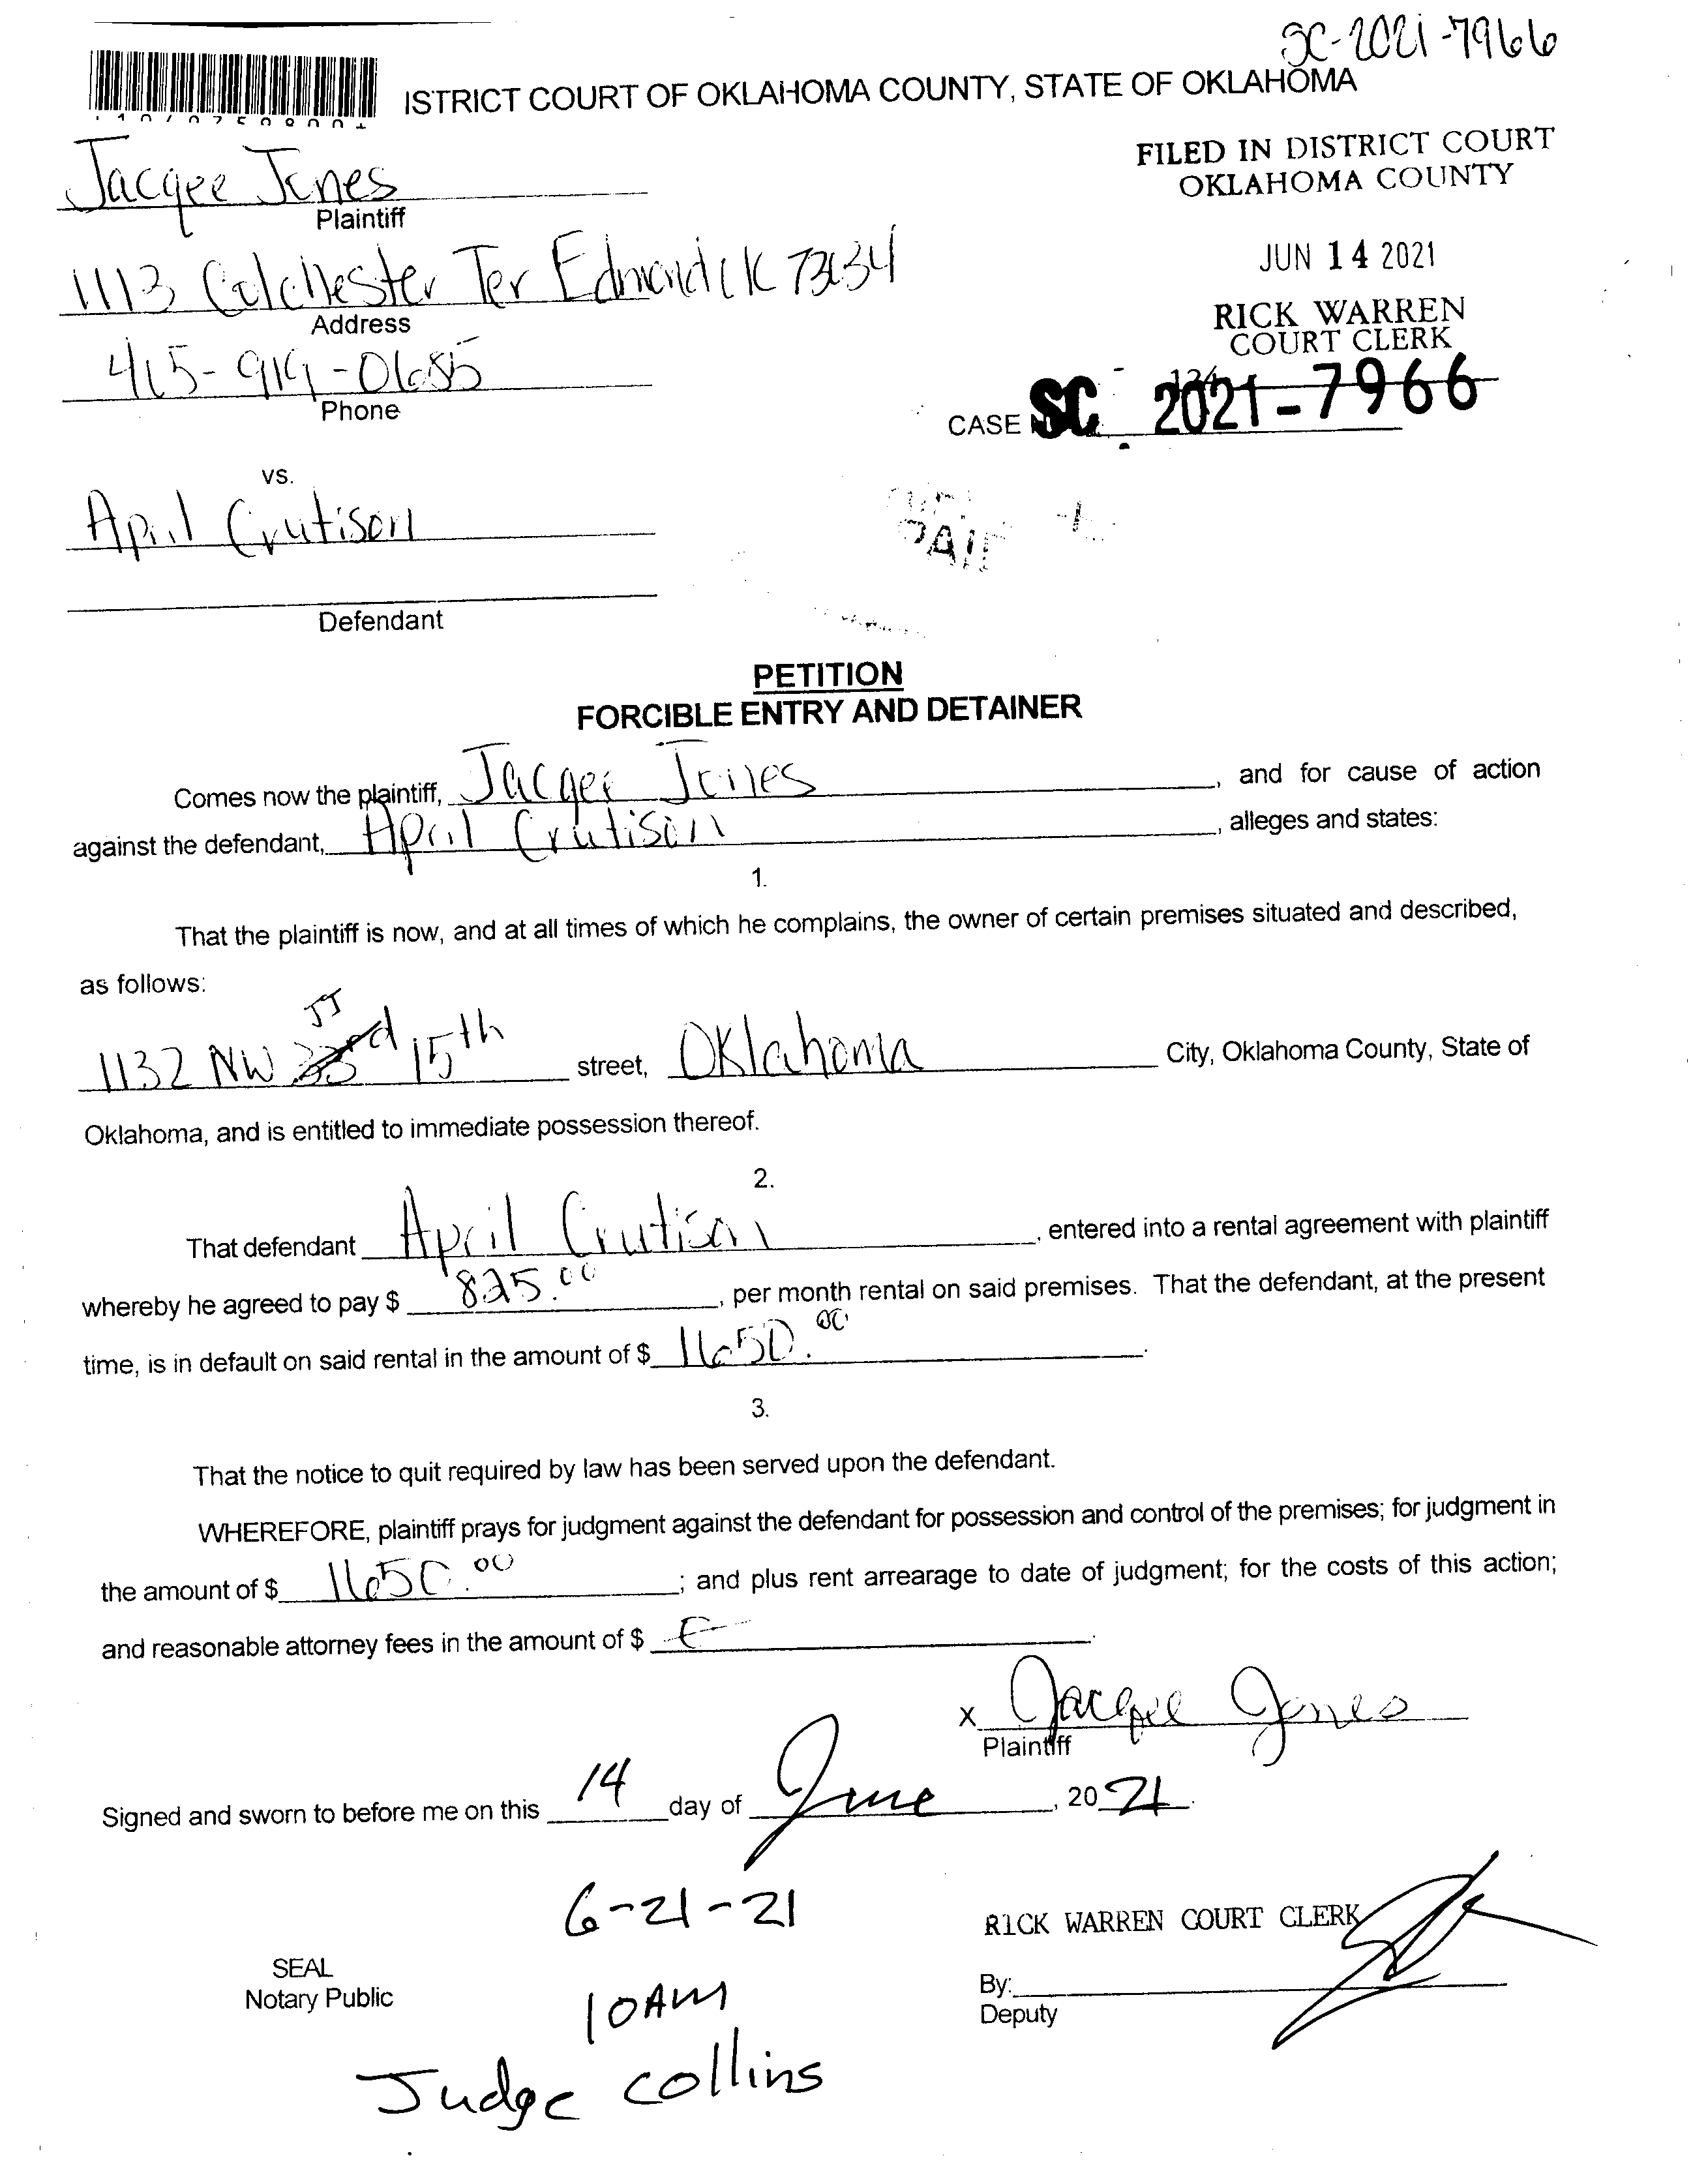 SC-2021-7966
ISTRICT COURT OF OKLAHOMA COUNTY, STATE OF OKLAHOMA
FILED IN DISTRICT COURT
OKLAHOMA COUNTY
JUN 14 2021
RICK WARREN
COURT CLERK
Jacqee Jones
Plaintiff
1113 Colchester Ter Edmond OK 73034
Address
405-919-0685
Phone
CASE SC 2021-7966
vs.
April Crutison
PAID
Defendant
PETITION
FORCIBLE ENTRY AND DETAINER
Comes now the plaintiff, Jacqee Jones, and for cause of action
against the defendant, April Crutison, alleges and states:
1.
That the plaintiff is now, and at all times of which he complains, the owner of certain premises situated and described,
as follows:
JJ
1132 NW 33rd 15th street, Oklahoma City, Oklahoma County, State of
Oklahoma, and is entitled to immediate possession thereof.
2.
That defendant April Crutison, entered into a rental agreement with plaintiff
whereby he agreed to pay $ 825.00, per month rental on said premises. That the defendant, at the present
time, is in default on said rental in the amount of $ 1650.00.
3.
That the notice to quit required by law has been served upon the defendant.
WHEREFORE, plaintiff prays for judgment against the defendant for possession and control of the premises; for judgment in
the amount of $ 1650.00; and plus rent arrearage to date of judgment; for the costs of this action;
and reasonable attorney fees in the amount of $
X Jacqee Jones
Plaintiff
Signed and sworn to before me on this 14 day of June, 2021.
6-21-21
RICK WARREN COURT CLERK
SEAL
Notary Public
10AM
By:
Deputy
Judge collins